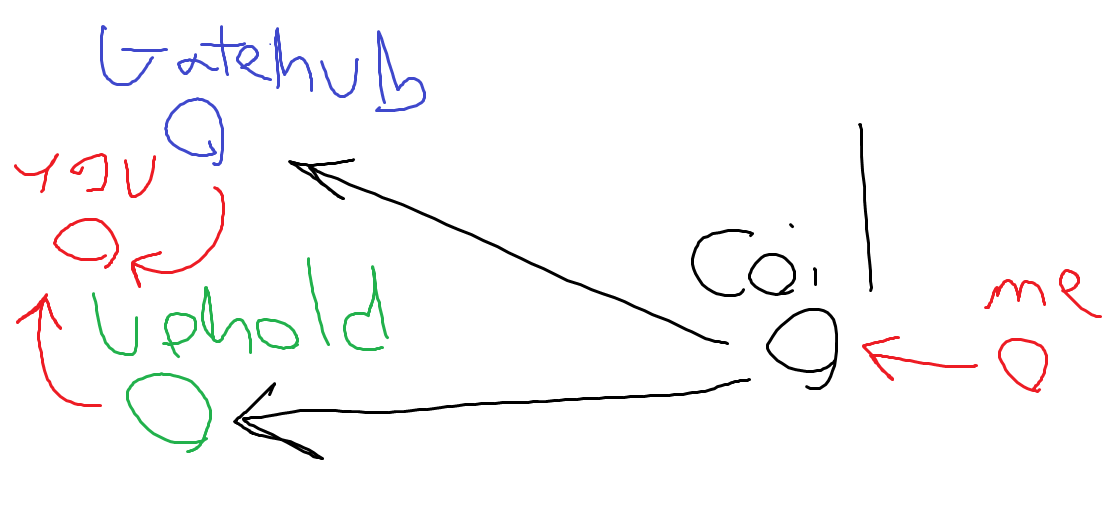 Gatehub
you
Uphold
Coil
me